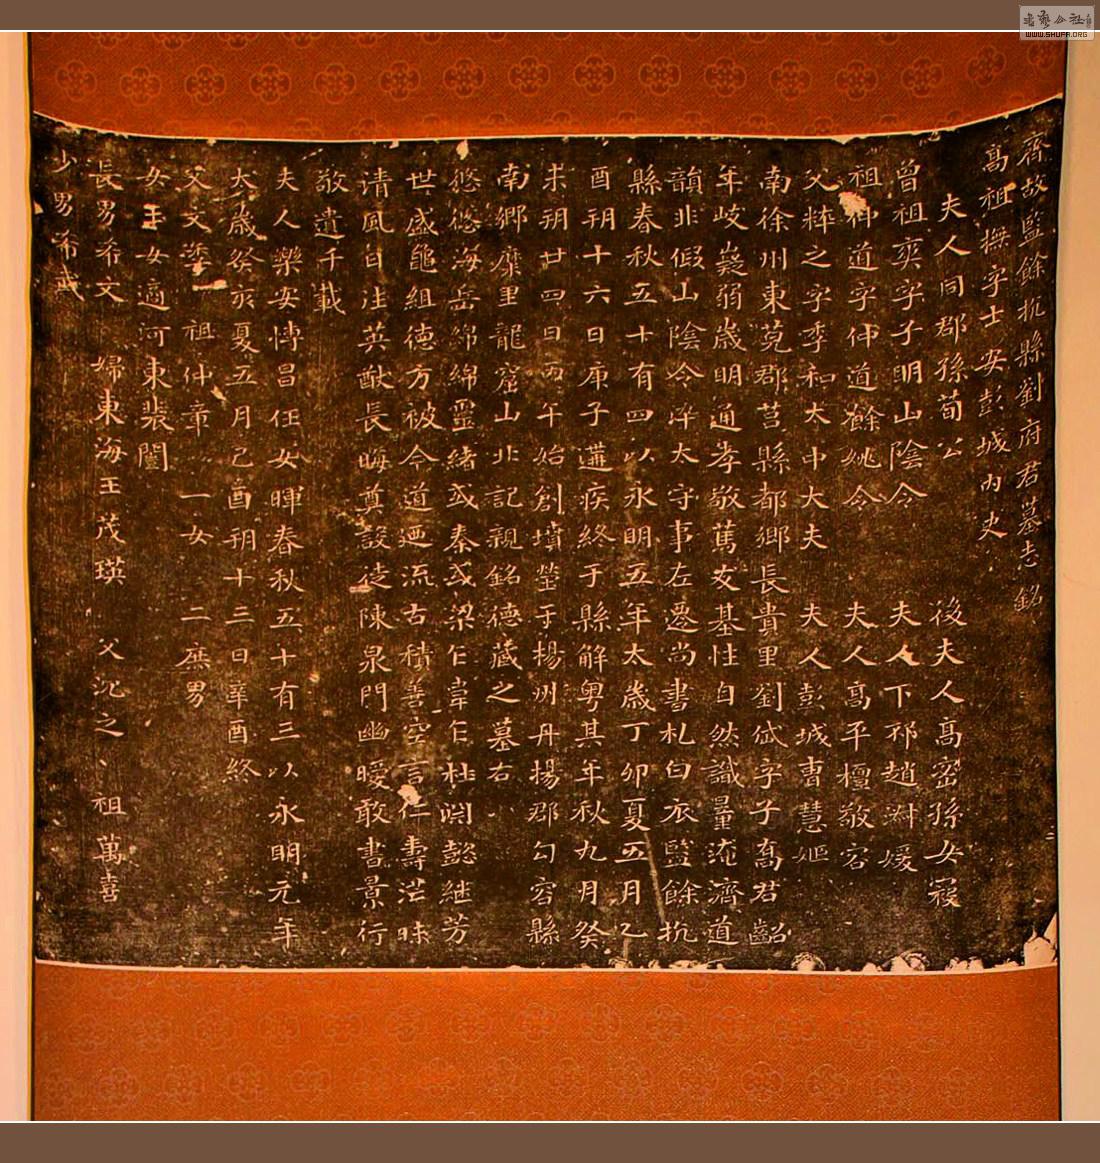 齊故監餘杭縣劉府君墓志銘
高祖撫字士安彭城內史
夫人同郡孫荀公 後夫人高密孫女寇
曾祖爽字子明山陰令 夫人下邳趙淑媛
祖仲道字仲道餘姚令 夫人高平檀敬容
父粹之字季和太中大夫 夫人彭城曹慧姬
南徐州東莞郡莒縣都鄉長貴里劉岱字子喬君齠
年岐嶷弱歲明通孝敬篤友基性自然識量淹濟道
韻非假山陰令淬太守事左遷尚書札白衣監餘杭
縣春秋五十有四以永明五年太歲丁卯夏五月乙
酉朔十六日庚子遘疾終于縣解粵其年秋九月癸
未朔廿四日丙午始創墳塋于楊州丹楊郡勾容縣
南鄉糜里龍窟山北記親銘德藏之墓右
悠悠海岳綿綿靈緒或秦或梁乍韋乍杜淵懿繼芳
世盛龜組德方被今道迺流古積善空言仁壽茫昧
清風日往英猷長晦奠設徒陳泉門幽曖敢書景行
敬遺千載
夫人樂安博昌任女暉春秋五十有三以永明元年
太歲癸亥夏五月己酉朔十三日辛酉終
父文季 祖仲章 一女 二庶男
女玉女適河東裴闓
長男希文 婦東海王茂瑛 父沉之 祖萬喜
少男希武
WWW.SHUFA.ORG